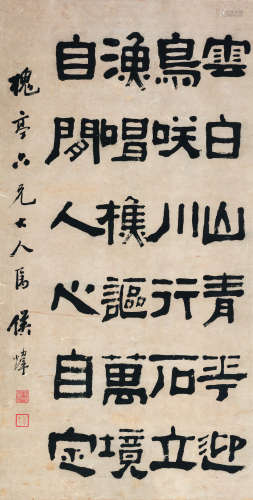 雲白山青華迎
鳥咲川行石立
漁唱樵謳萬境
自閒人心自定
槐亭六兄大人屬 侯